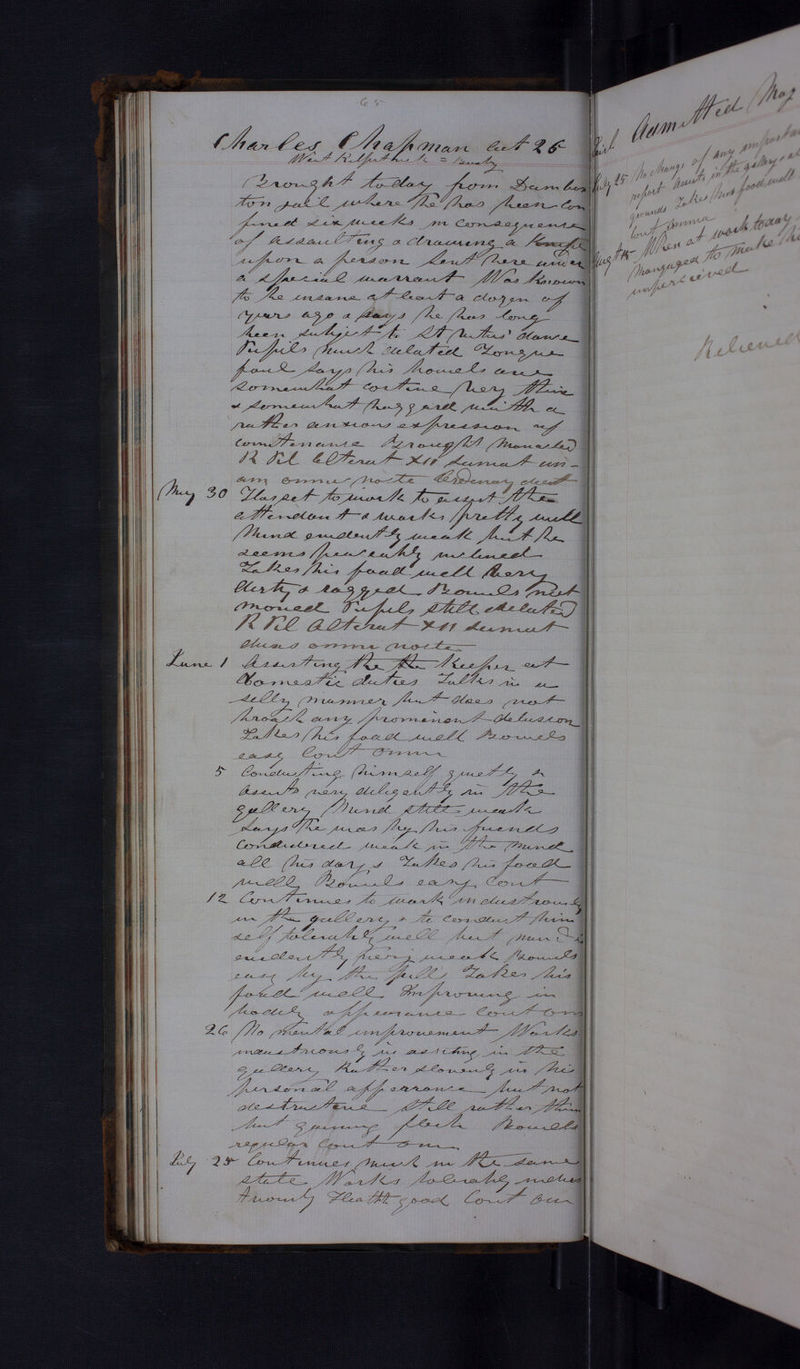 65
Charles Chapman aet 26
West Kilpatrick = County
Brought today from Dumbar
ton jail where he has been con
fined six weeks in consequence
of assaulting & drawing a Knife
upon a person Sent here under
a special warrant Was known
to be insane at least a dozen of
years ago & says he has long
been subject to St Vitus' dance
Pupils much delated Tongue
foul Says his bowels are
somewhat costive Very thin
& somewhat haggard with a
rather anxious expression of
countenance Brought Manacled
R Pil Alterat XII sumat un-
am omne nocte Ordinary diet
May 30 Was set to work to assist the
attendant & works pretty well
Mind evidently weak but he
seems peaceably inclined
Takes his food well Very
dirty & ragged Bowels not
moved Pupils still delated
R Pil Alterat XII sumat
duas omne nocte
June 1 Assisting the the Keeper at
domestic duties Talks in a
silly manner but does not
broach any prominent delusion
Takes his food well Bowels
easy Cont Omn
5 Conducting himself quietly &
assists very diligently in the
gallery Mind still weak
Says he was by his friends
considered weak in the mind
all his days Takes his food
well Bowels easy Cont
12 Continues to work industriously
in the gallery & to conduct him
self tolerably well but mind is
evidently very weak Bowels
easy by the pills Takes his
food well Improving in
bodily appearance Cont Omn
26 No mental improvement Works
industriously in assisting in the
gallery Rather slovenly in his
personal appearance but not
destructive Still rather thin
but gaining flesh Bowels
regular Cont Om
July 25 Continues much in the same
state Works tolerably indus
triously Health good Cont Om
Admitted May
July 25 No change of any importan
report Assists in the gallery & at
grounds Takes his food well
Cont Omnia
Augt 15 When at work today
managed to make his
unperceived
Relieved